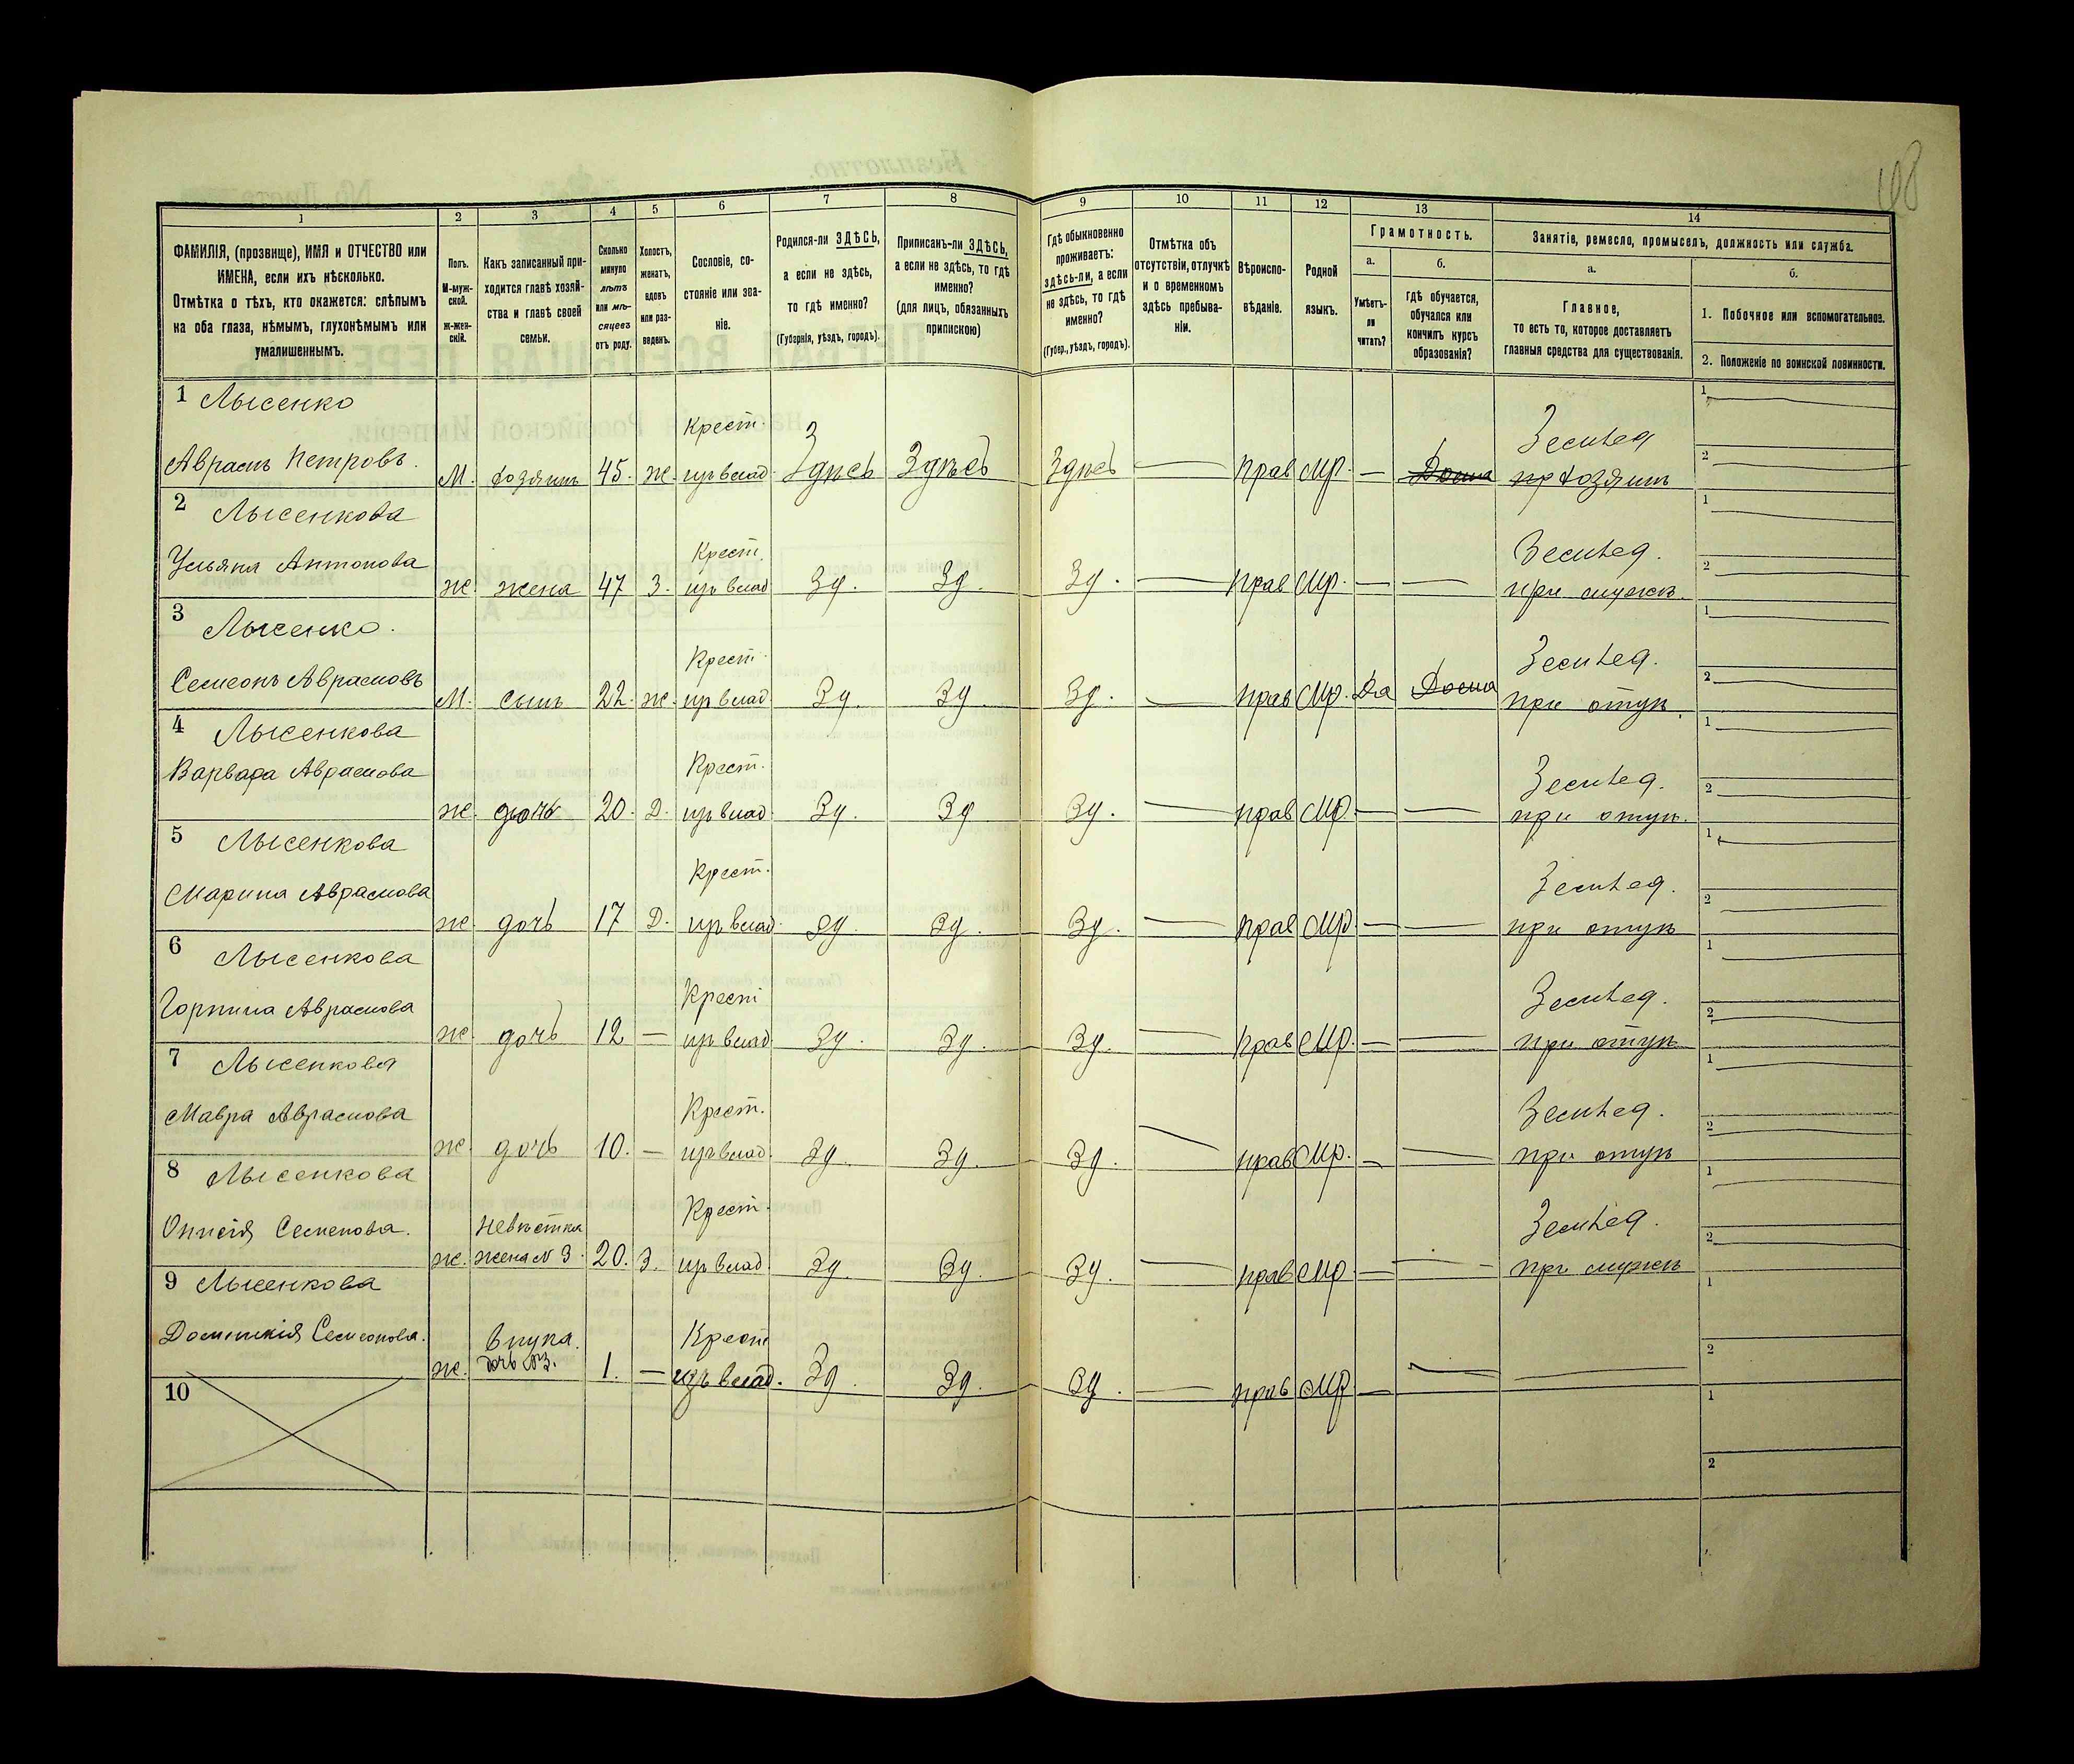 108
1 2 3 4 5 6 7 8 9 10 11 12 13 14
ФАМИЛІЯ, (прозвище), ИМЯ и ОТЧЕСТВО или
ИМЕНА, если ихъ нѣсколько.
Отмѣтка о тѣхъ, кто окажется: слѣпымъ
на оба глаза, нѣмымъ, глухонѣмымъ или
умалишеннымъ.
Полъ.
М-муж-
ской.
Ж-жен-
скій.
Какъ записанный при-
ходится главѣ хозяй-
ства и главѣ своей
семьи.
Сколько
минуло
лѣтъ
или мѣ-
сяцевъ
отъ роду.
Холостъ,
женатъ,
вдовъ
или раз-
веденъ.
Сословіе, со-
стояніе или зва-
ніе.
Родился-ли ЗДѢСЬ,
а если не здѣсь,
то гдѣ именно?
(Губернія, уѣздъ, городъ).
Приписанъ-ли ЗДѢСЬ,
а если не здѣсь, то гдѣ
именно?
(для лицъ, обязанныхъ
припискою)
Гдѣ обыкновенно
проживаетъ:
здѣсь-ли, а если
не здѣсь, то гдѣ
именно?
(Губер., уѣздъ, городъ).
Отмѣтка объ
отсутствіи, отлучкѣ
и о временномъ
здѣсь пребыва-
ніи.
Вѣроиспо-
вѣданіе.
Родной
языкъ.
Грамотность.
а.
Умѣетъ-
ли
читать?
б.
Гдѣ обучается,
обучался или
кончилъ курсъ
образованія?
Занятіе, ремесло, промыселъ, должность или служба.
а.
Главное,
то есть то, которое доставляетъ
главныя средства для существованія.
б.
1. Побочное или вспомогательное.
2. Положеніе по воинской повинности.
1 Лысенко
Крест. Землед 1
Аврамъ Петровъ. М. хозяинъ 45. ж. изъ влад. Здѣсь Здѣсь Здѣсь — прав мр. — Дома пр хозяинъ 2
2 Лысенкова
Крест. Землед. 1
Ульяна Антонова ж. жена 47 З. изъ влад Зд. Зд. Зд. — прав мр. — — при мужѣ. 2
3 Лысенко.
Крест. Землед. 1
Семеонъ Аврамовъ М. сынъ 22. ж. изъ влад Зд. Зд. Зд. — прав мр. Да Дома при отцѣ. 2
4 Лысенкова
Крест. Землед. 1
Варвара Аврамова ж. дочь 20. Д. изъ влад. Зд. Зд Зд. — прав мр. — — при отцѣ. 2
5 Лысенкова
Крест. Землед. 1
Марина Аврамова ж. дочь 17 Д. изъ влад. Зд. Зд. Зд. — прав мр. — — при отцѣ 2
6 Лысенкова
Крест Землед. 1
Горпина Аврамова ж. дочь 12 — изъ влад Зд. Зд. Зд. — прав мр. — — при отцѣ 2
7 Лысенкова
Крест. Землед. 1
Мавра Аврамова ж. дочь 10. — изъ влад. Зд. Зд. Зд. — прав мр. — — при отцѣ 2
8 Лысенкова
Невѣстка Крест. Землед. 1
Семенова. ж. жена № 3 20. З. изъ влад. Зд. Зд. Зд. — прав мр. — — при мужѣ 2
9 Лысенкова
внука. Крест 1
Доминикія Семеонова. ж. дочь №3. 1. — изъ влад. Зд. Зд. Зд. — прав мр. — — — 2
10
1
2